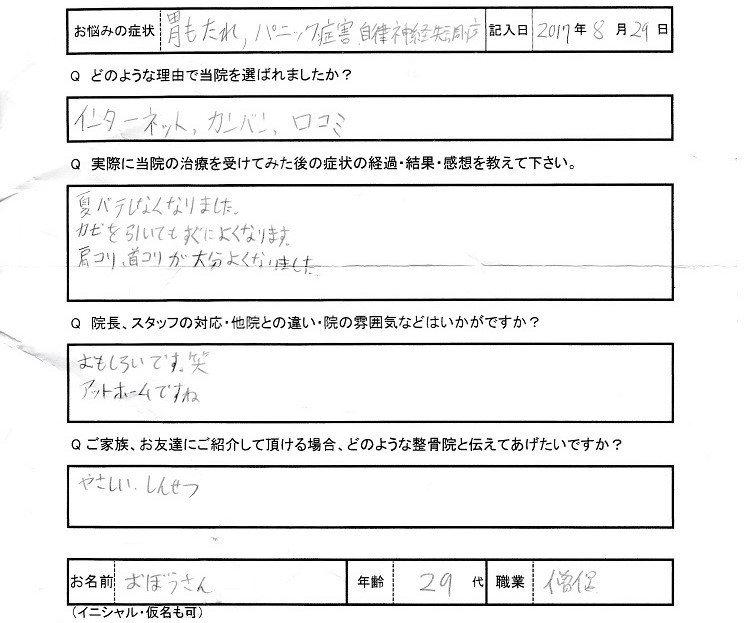 お悩みの症状 胃もたれ, パニック症害, 自律神経失調症 記入日 2017年8月29日
Q どのような理由で当院を選ばれましたか？
インターネット, カンバン, 口コミ
Q 実際に当院の治療を受けてみた後の症状の経過・結果・感想を教えて下さい。
夏バテしなくなりました。
カゼを引いてもすぐによくなります。
肩コリ、首コリが大分よくなりました
Q 院長、スタッフの対応・他院との違い・院の雰囲気などはいかがですか？
おもしろいです。笑
アットホームですね
Q ご家族、お友達にご紹介して頂ける場合、どのような整骨院と伝えてあげたいですか？
やさしい、しんせつ
お名前 おぼうさん 年齢 29 代 職業 僧侶
（イニシャル・仮名も可）